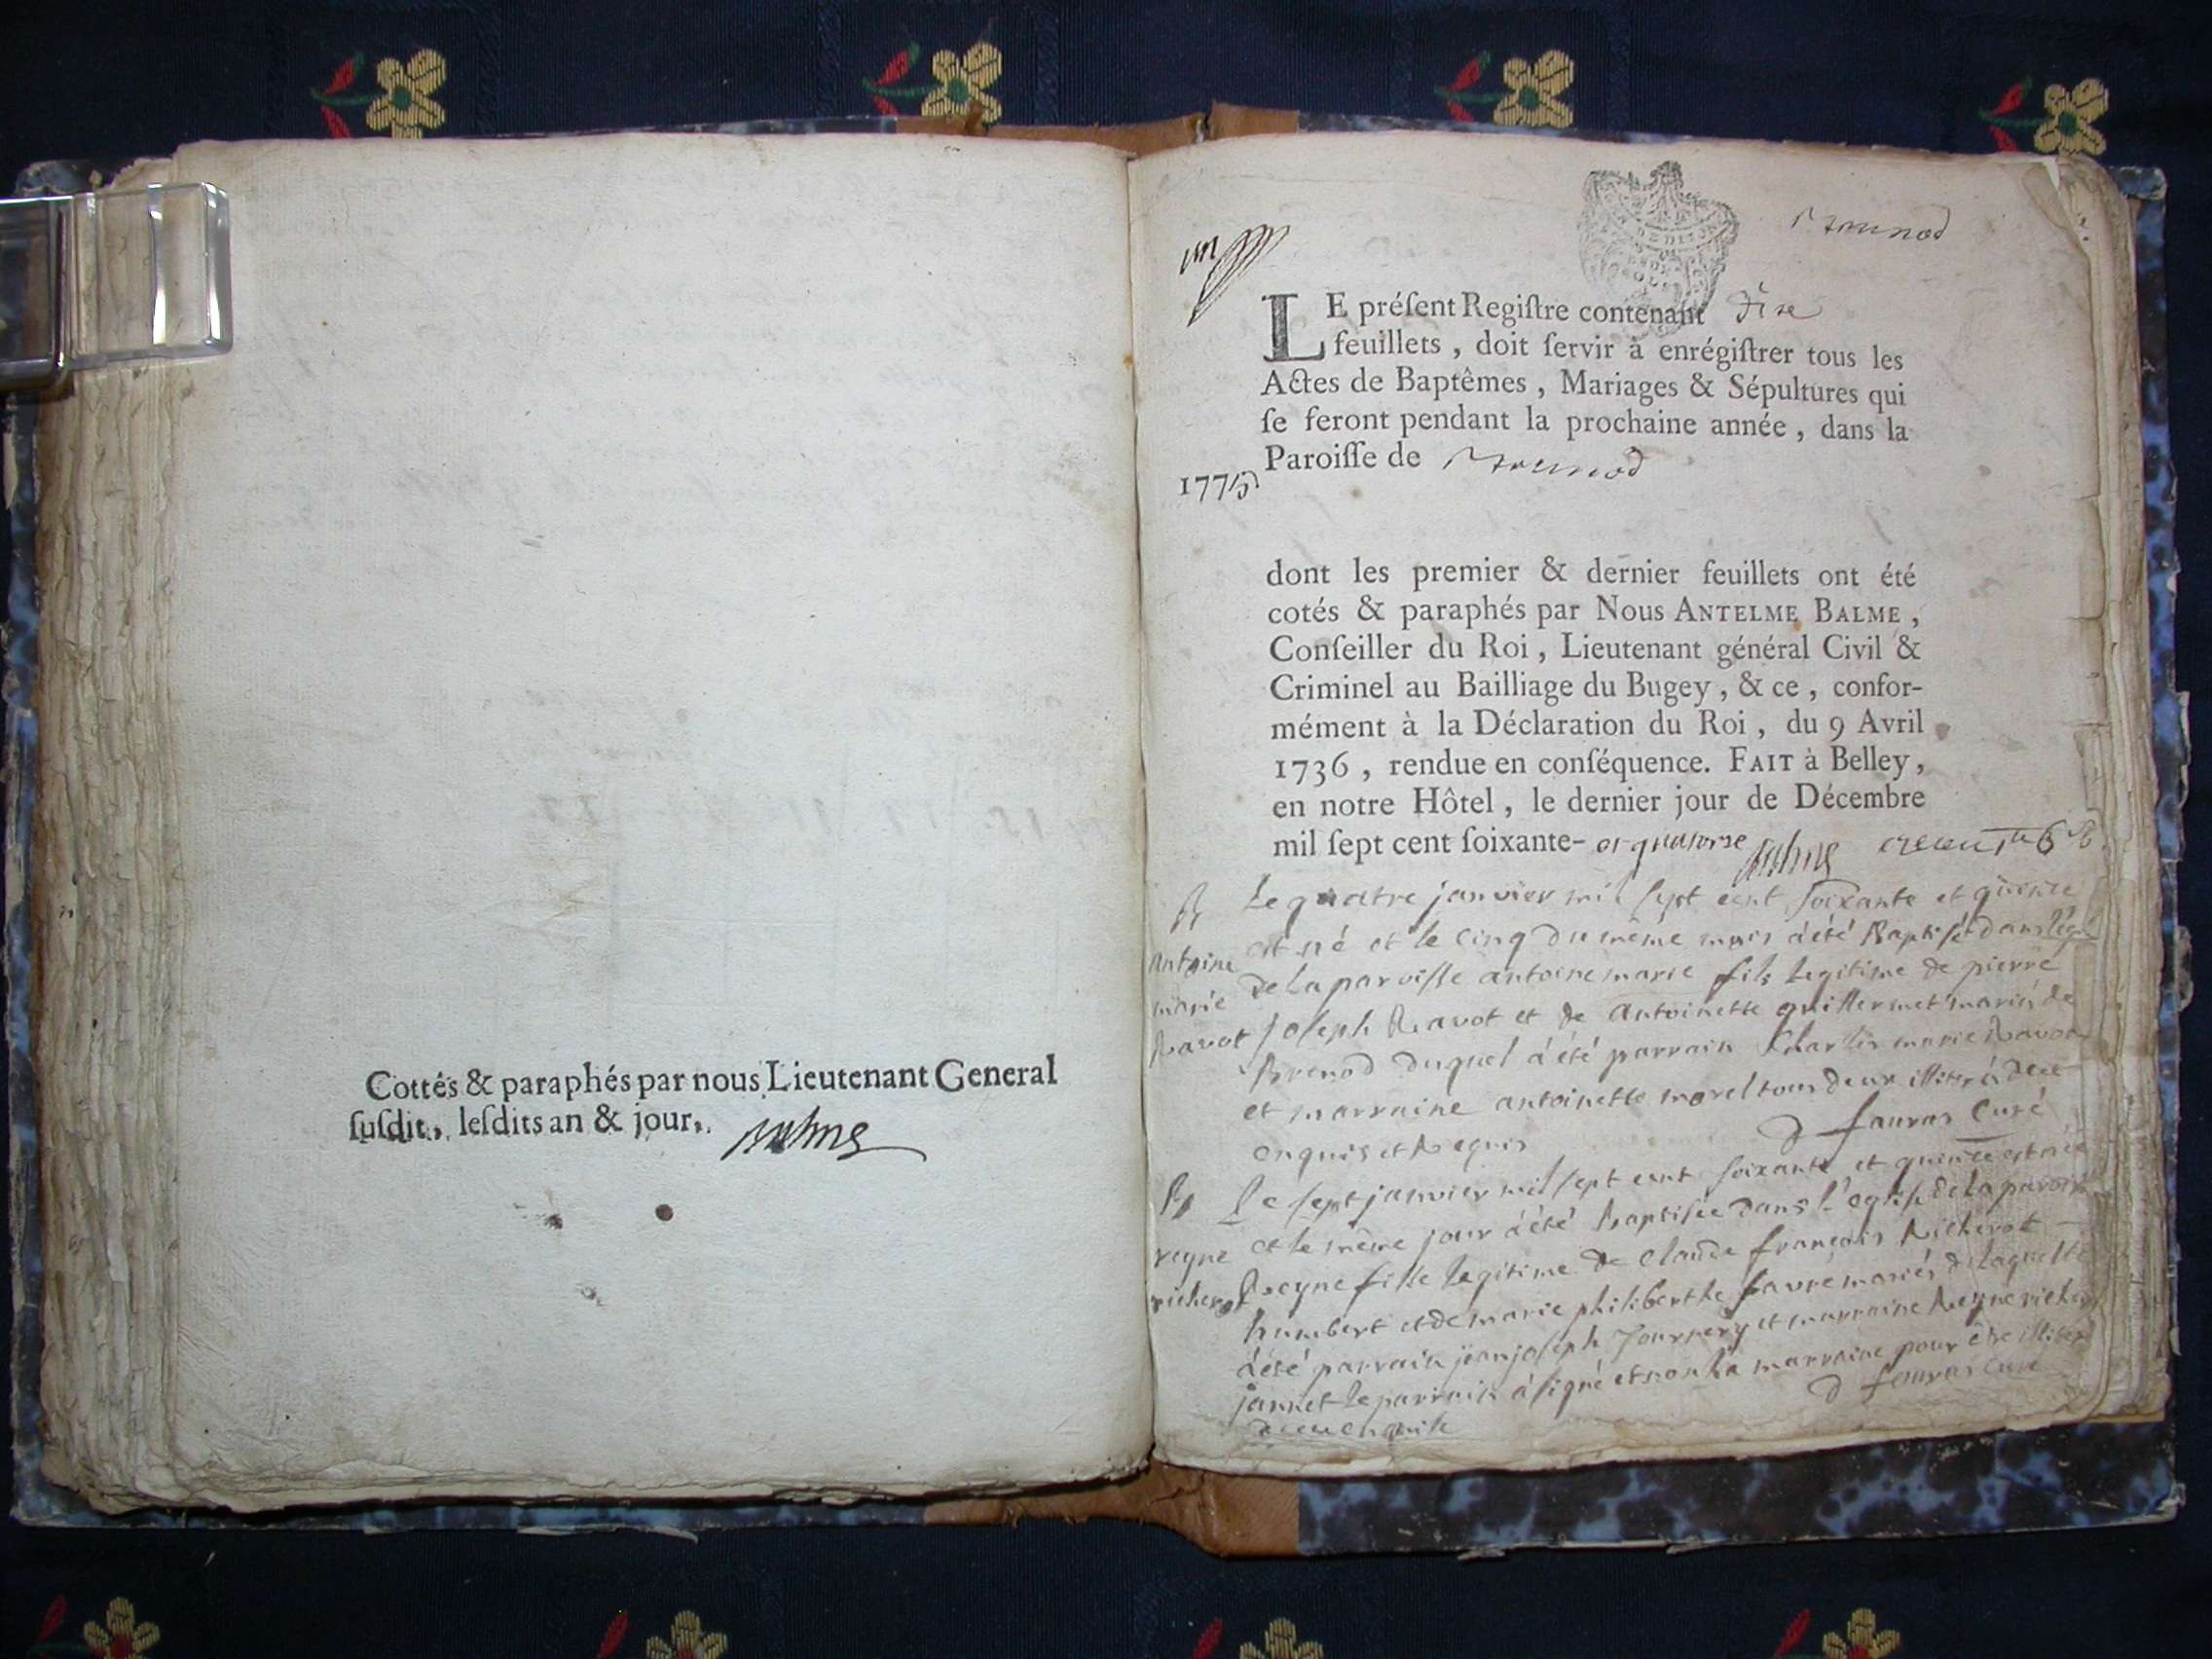 Cottés & paraphés par nous Lieutenant General
ſuſdit, leſdits an & jour.
un
Brenod
LE préſent Regiſtre contenant dixe
feuillets, doit ſervir à enrégiſtrer tous les
Actes de Baptêmes, Mariages & Sépultures qui
ſe feront pendant la prochaine année, dans la
Paroiſſe de Brenod
1775
dont les premier & dernier feuillets ont été
cotés & paraphés par Nous ANTELME BALME,
Conſeiller du Roi, Lieutenant général Civil &
Criminel au Bailliage du Bugey, & ce, confor-
mément à la Déclaration du Roi, du 9 Avril
1736, rendue en conſéquence. FAIT à Belley,
en notre Hôtel, le dernier jour de Décembre
mil ſept cent ſoixante- et quatorse Balme
B
antoine
marie
Ravot
Le quatre janvier mil sept cent soixante et quinze
est né et le cinq du même mois à été Baptisé dans l'egl
de la paroisse antoine marie fils legitime de pierre
joseph Ravot et de Antoinette guillermet mariés de
Brenod duquel à été parrain Charles marie Ravot
et marraine antoinette morel tous deux illiterés de ce
enquis et Requis
D fauvas Curé
B
reyne
richerot
Le sept janvier mil sept cent soixante et quinze est née
et le même jour à été baptisée dans l'eglise de la paroisse
Reyne fille legitime de claude françois Richerot
humbert et de marie philiberthe favre mariés de laquelle
à été parrain jean joseph Tournery et marraine Reyne richerot
jannet le parrain à signé et non la marraine pour être illiteré
de ce enquise
D fauvas Curé